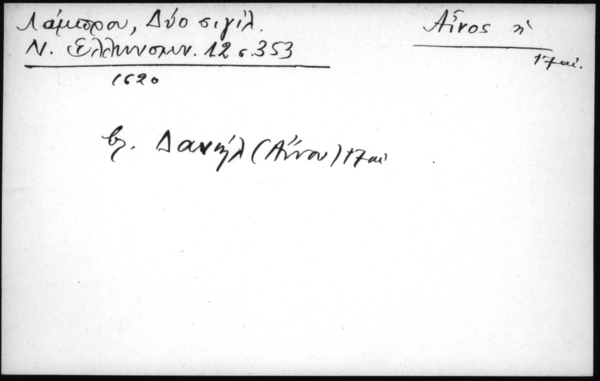 Λάμπρου, Δύο σιγίλ.
Ν. Ελληνομν. 12 σ. 353
1620
Αἶνος ἡ
17 αἰ.
βλ. Δανιήλ (Αἴνου) 17 αἰ